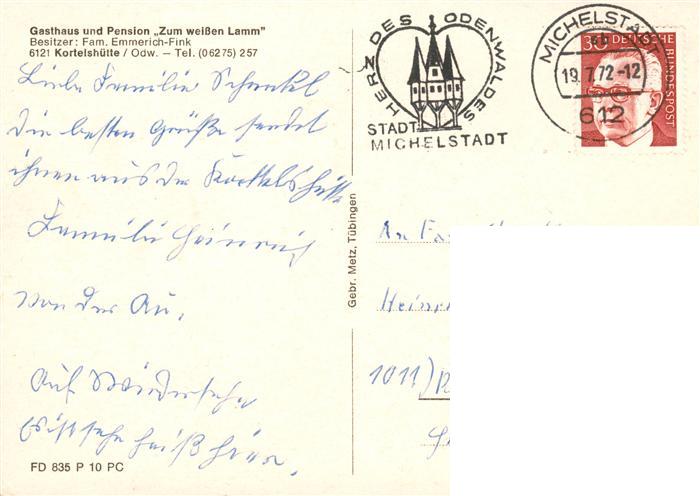 Gasthaus und Pension „Zum weißen Lamm"
Besitzer: Fam. Emmerich-Fink
6121 Kortelshütte / Odw. — Tel. (06275) 257
Liebe Familie Schenkl
Die besten Grüße sendet
ihnen aus der Kortelshütte
Familie Heinrich
von der Au.
Auf Wiedersehn
sehr heiß hier.
FD 835 P 10 PC
Gebr. Metz, Tübingen
HERZ DES ODENWALDES
STADT
MICHELSTADT
MICHELSTADT
19.7.72-12
612
30 DEUTSCHE
BUNDESPOST
An Fa
Heinr
1011)